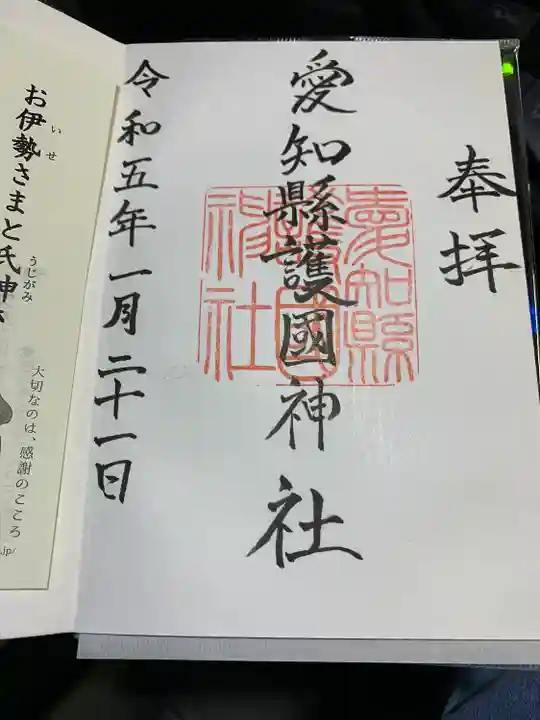 奉拝
愛知縣護國神社
愛知縣
護國
神社
令和五年一月二十一日
お伊勢さまと氏神
いせ
うじがみ
大切なのは、感謝のこころ
.jp/